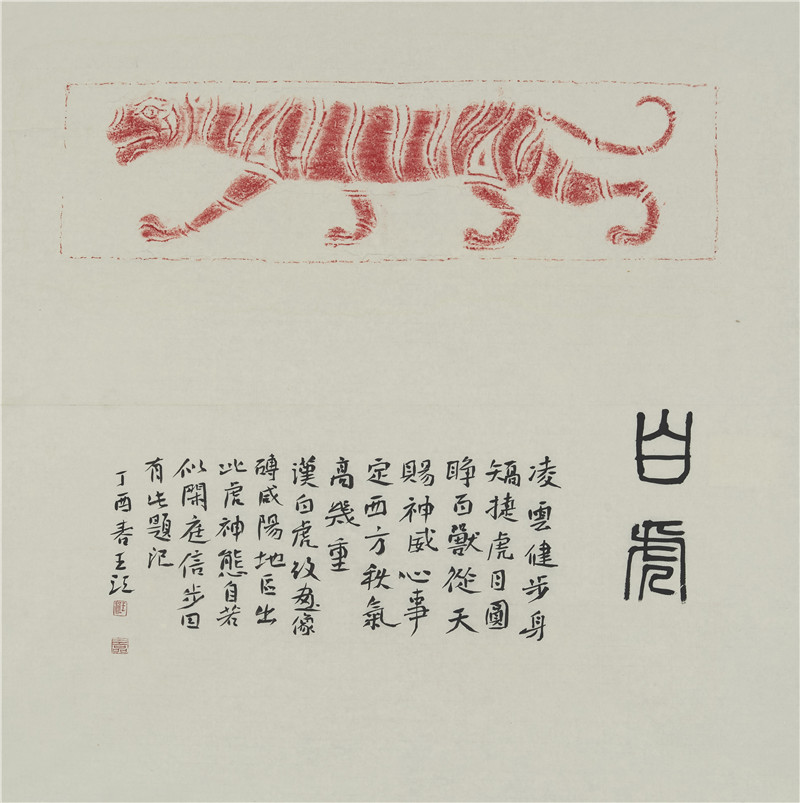 白虎
凌雲健步身
矯捷虎目圓
睁百獸從天
賜神威心事
定西方秩氣
高幾重
漢白虎紋畫像
磚咸陽地區出
此虎神態自若
似閑庭信步因
有此題記
丁酉春王